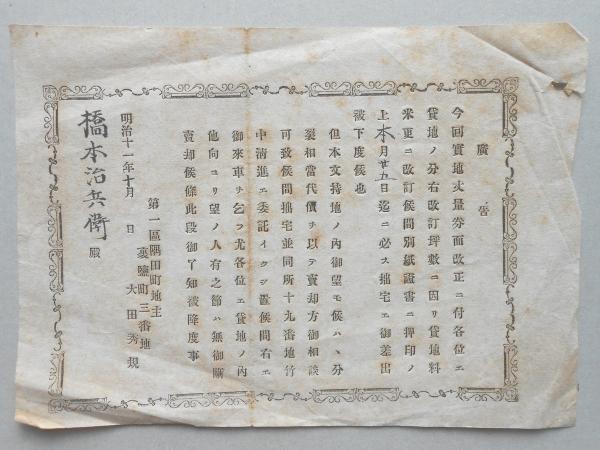 廣告
今回實地丈量券面改正ニ付各位エ
貸地ノ分右改訂坪數ニ因リ貸地料
米更ニ改訂候間別紙證書ニ押印ノ
上本月廿五日迄ニ必ス拙宅エ御差出
被下度候也
但本文持地ノ內御望モ候ハヽ分
裂相當代價ヲ以テ賣却方御相談
可致候間拙宅並同所十九番地竹
中淸進エ委託イタシ置候間右エ
御來車ヲ乞フ尤各位エ貸地ノ內
他向ヨリ望ノ人有之節ハ無御斷
賣却候條此段御了知被降度事
第一區隅田町地主
裏鹽町三番地
太田秀規
明治十一年十月 日
橋本治兵衛殿